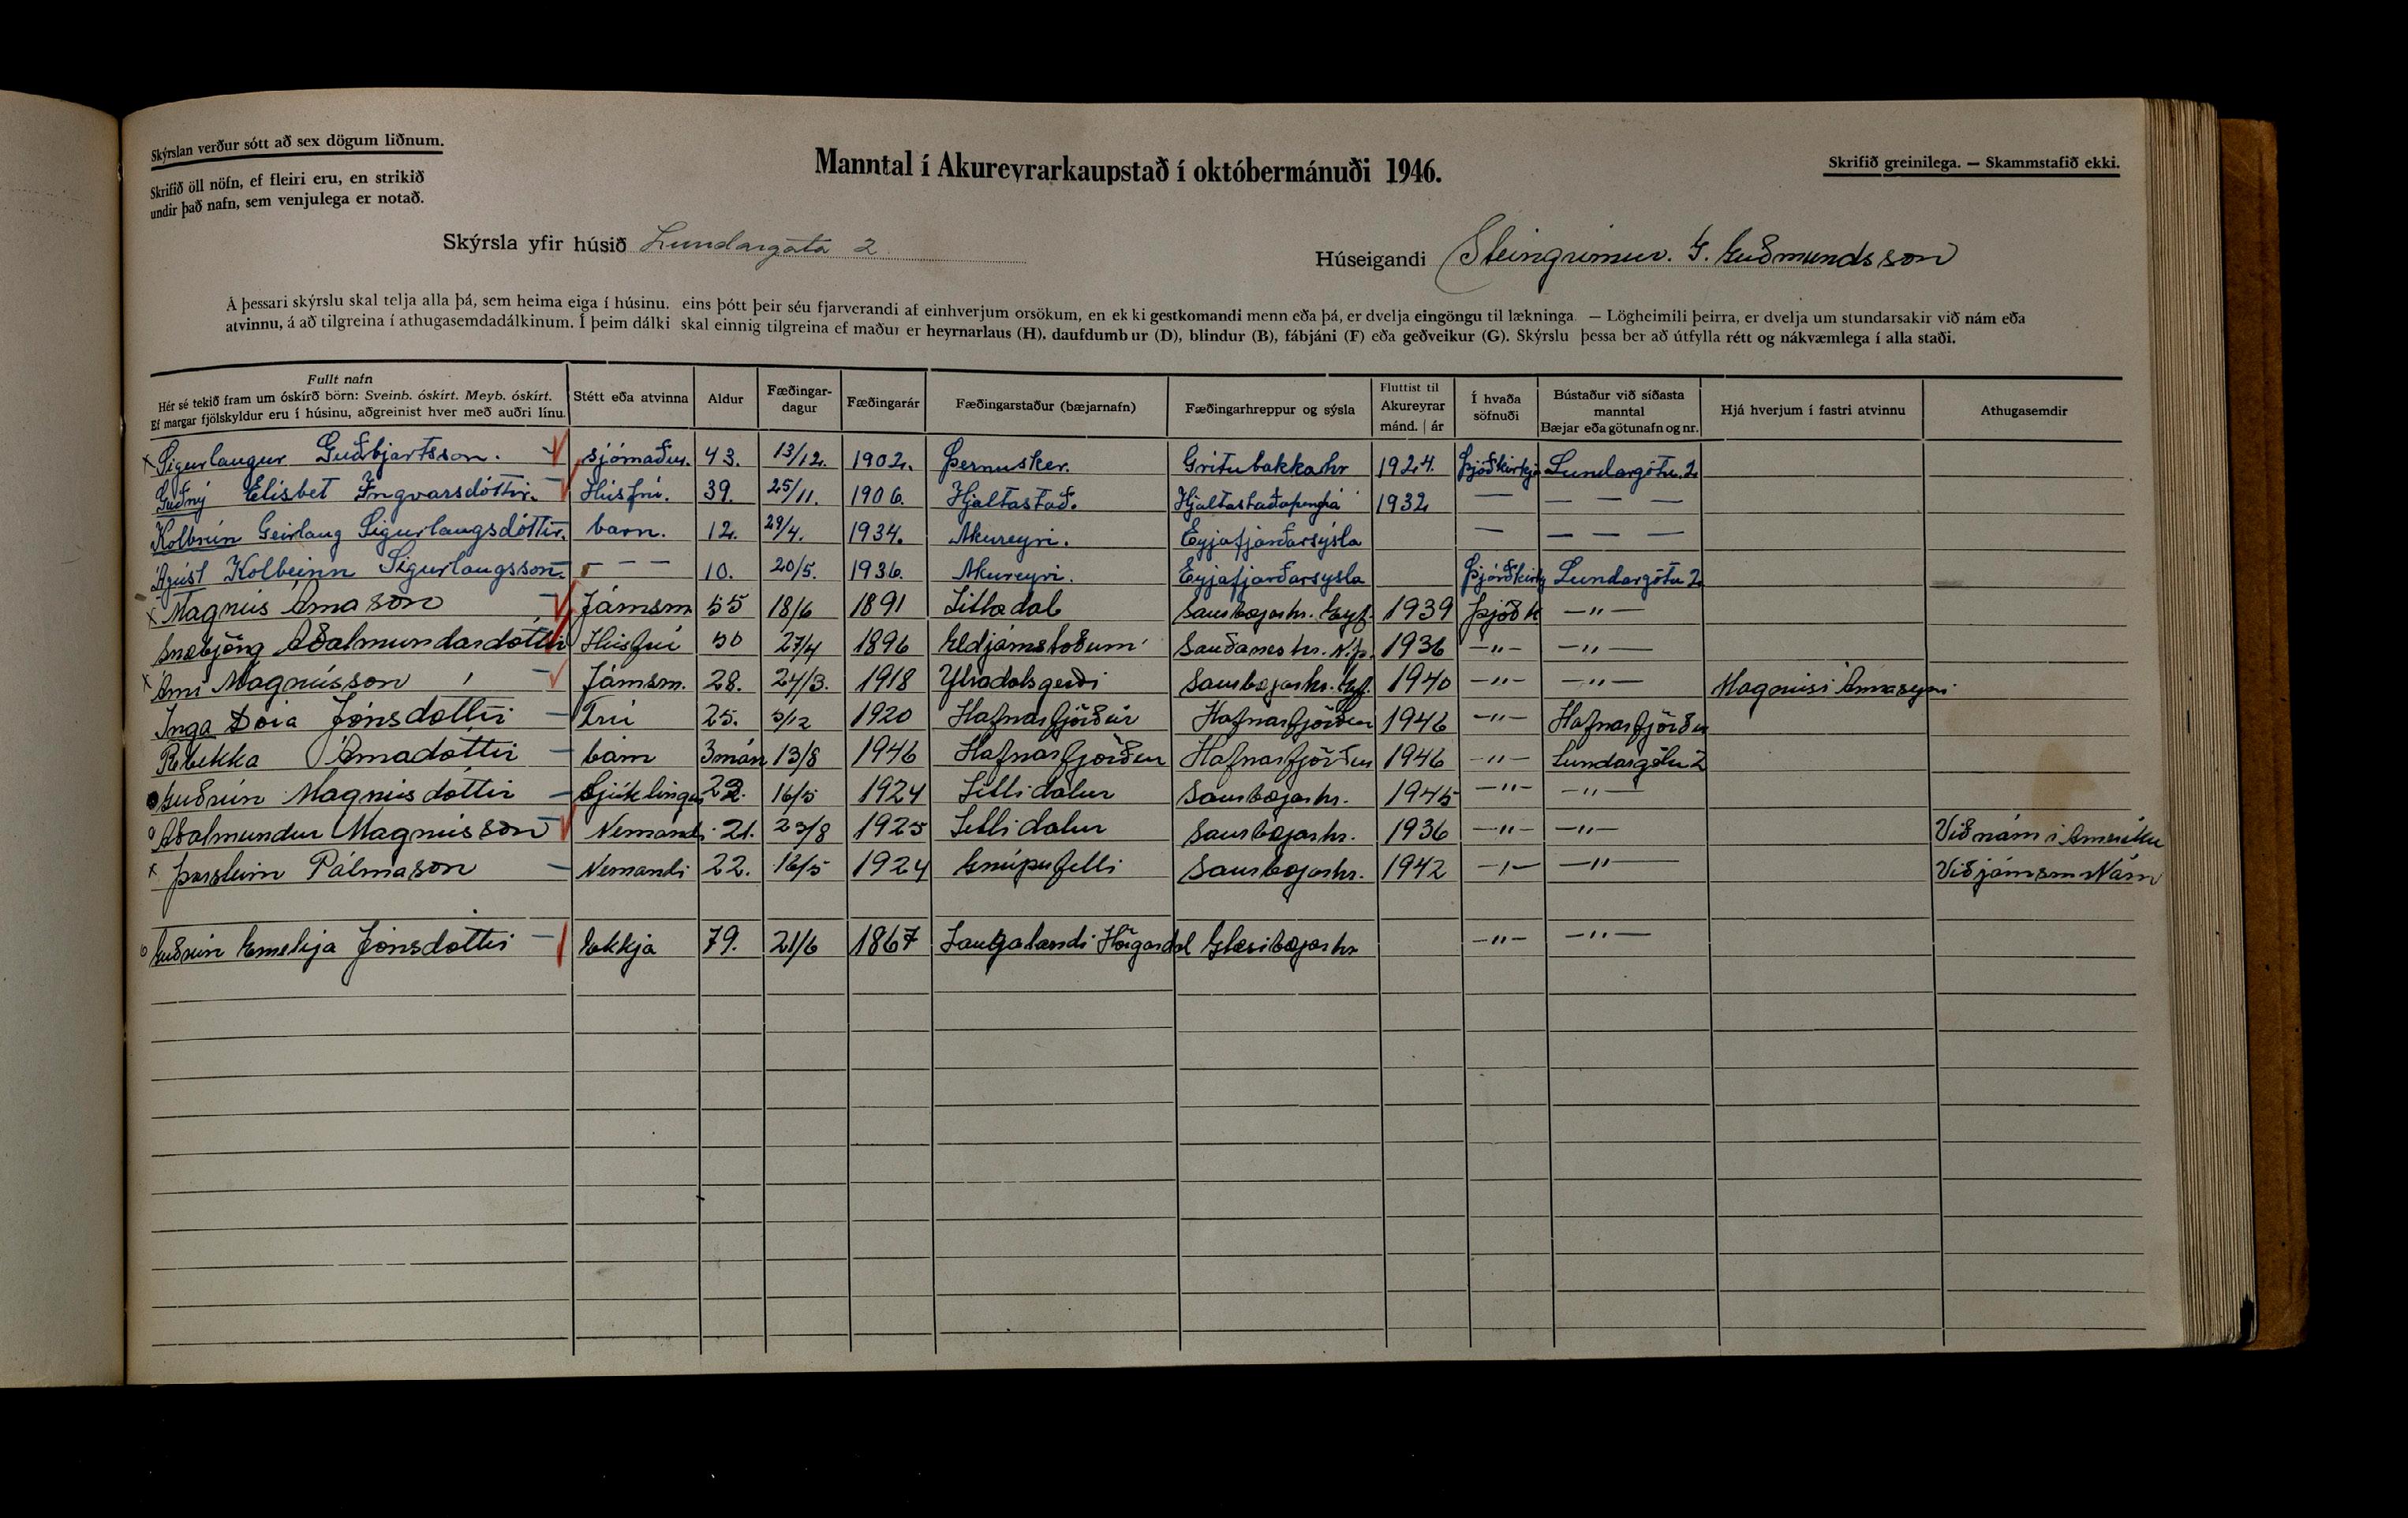 Skýrslan verður sótt að sex dögum liðnum.
Skrifið öll nöfn, ef fleiri eru, en strikið
undir það nafn, sem venjulega er notað.
Manntal í Akureyrarkaupstað í októbermánuði 1946.
Skrifið greinilega. — Skammstafið ekki.
Skýrsla yfir húsið Lundargata 2
Húseigandi Steingrímur. G. Guðmundsson
Á þessari skýrslu skal telja alla þá, sem heima eiga í húsinu, eins þótt þeir séu fjarverandi af einhverjum orsökum, en ekki gestkomandi menn eða þá, er dvelja eingöngu til lækninga. — Lögheimili þeirra, er dvelja um stundarsakir við nám eða
atvinnu, á að tilgreina í athugasemdadálkinum. Í þeim dálki skal einnig tilgreina ef maður er heyrnarlaus (H), daufdumbur (D), blindur (B), fábjáni (F) eða geðveikur (G). Skýrslu þessa ber að útfylla rétt og nákvæmlega í alla staði.
Fullt nafn
Hér sé tekið fram um óskírð börn: Sveinb. óskírt. Meyb. óskírt.
Ef margar fjölskyldur eru í húsinu, aðgreinist hver með auðri línu.
Stétt eða atvinna
Aldur
Fæðingar-
dagur
Fæðingarár
Fæðingarstaður (bæjarnafn)
Fæðingarhreppur og sýsla
Fluttist til
Akureyrar
mánd. | ár
Í hvaða
söfnuði
Bústaður við síðasta
manntal
Bæjar eða götunafn og nr.
Hjá hverjum í fastri atvinnu
Athugasemdir
x Sigurlaugur Guðbjartsson. sjómaður. 43. 13/12. 1902. Þernusker. Grítubakkahr 1924. Þjóðkirkja Lundargötu. 2
Guðný Elísbet Ingvarsdóttir. Húsfrú. 39. 25/11. 1906. Hjaltastað. Hjaltastaðaþinghá 1932 — — — —
Kolbrún Geirlaug Sigurlaugsdóttir. barn. 12. 29/4. 1934. Akureyri. Eyjafjarðarsýsla — — — —
Ágúst Kolbeinn Sigurlaugsson. — — 10. 20/5. 1936. Akureyri. Eyjafjarðarsýsla Þjóðkirkj Lundargötu 2
x Magnús Árnason Járnsm 55 18/6 1891 Litladal Saurbæjarhr. Eyf. 1939 Þjóðk —"—
Snæbjörg Aðalmundardóttir Húsfrú 50 27/4 1896 Eldjárnstöðum Sauðaneshr. N.þ. 1936 —"— —"—
x Árni Magnússon Járnsm. 28. 24/3. 1918 Ytradalsgerði Saurbæjarhr. Eyf. 1940 —"— —"— Magnúsi Árnasyni
Inga Dóra Jónsdóttir Frú 25. 5/12 1920 Hafnarfjörður Hafnarfjörður 1946 —"— Hafnarfjörður
Rebekka Árnadóttir barn 3 mán 13/8 1946 Hafnarfjörður Hafnarfjörður 1946 —"— Lundargötu 2
Guðrún Magnúsdóttir Sjúklingur 22. 16/5 1924 Litlidalur Saurbæjarhr. 1945 —"— —"—
o Aðalmundur Magnússon Nemandi 21. 23/8 1925 Litlidalur Saurbæjarhr. 1936 —"— —"— Við nám í Ameríku
x Þorsteinn Pálmason Nemandi 22. 16/5 1924 Gnúpufelli Saurbæjarhr. 1942 —"— —"— Við járnsm Nám
o Guðrún Emelija Jónsdóttir Ekkja 79. 21/6 1867 Laugalandi Hörgardal Glæsibæjarhr —"— —"—